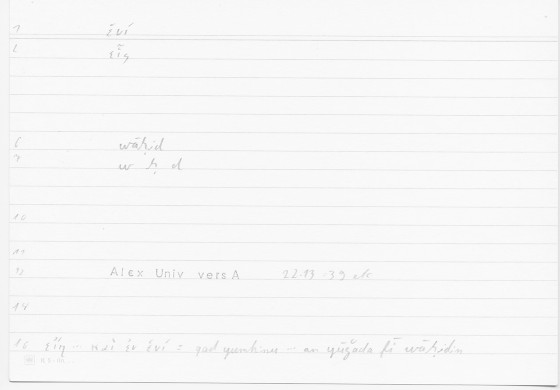 1 ἑνί
2 εἷς
6 wāḥid
7 w ḥ d
10
11
12 Alex Univ vers A 22.13 39
14
16 εἴη – καὶ ἐν ἑνί = qad yumkinu – an yūǧada fī wāḥidin